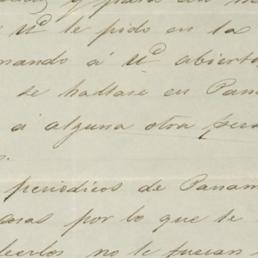 y para
Ud le pido en la
mando á Ud abierto
se hallase en Pana
á alguna otra
s.
periodicos de Panam
por lo que se
leerlos no le fueran